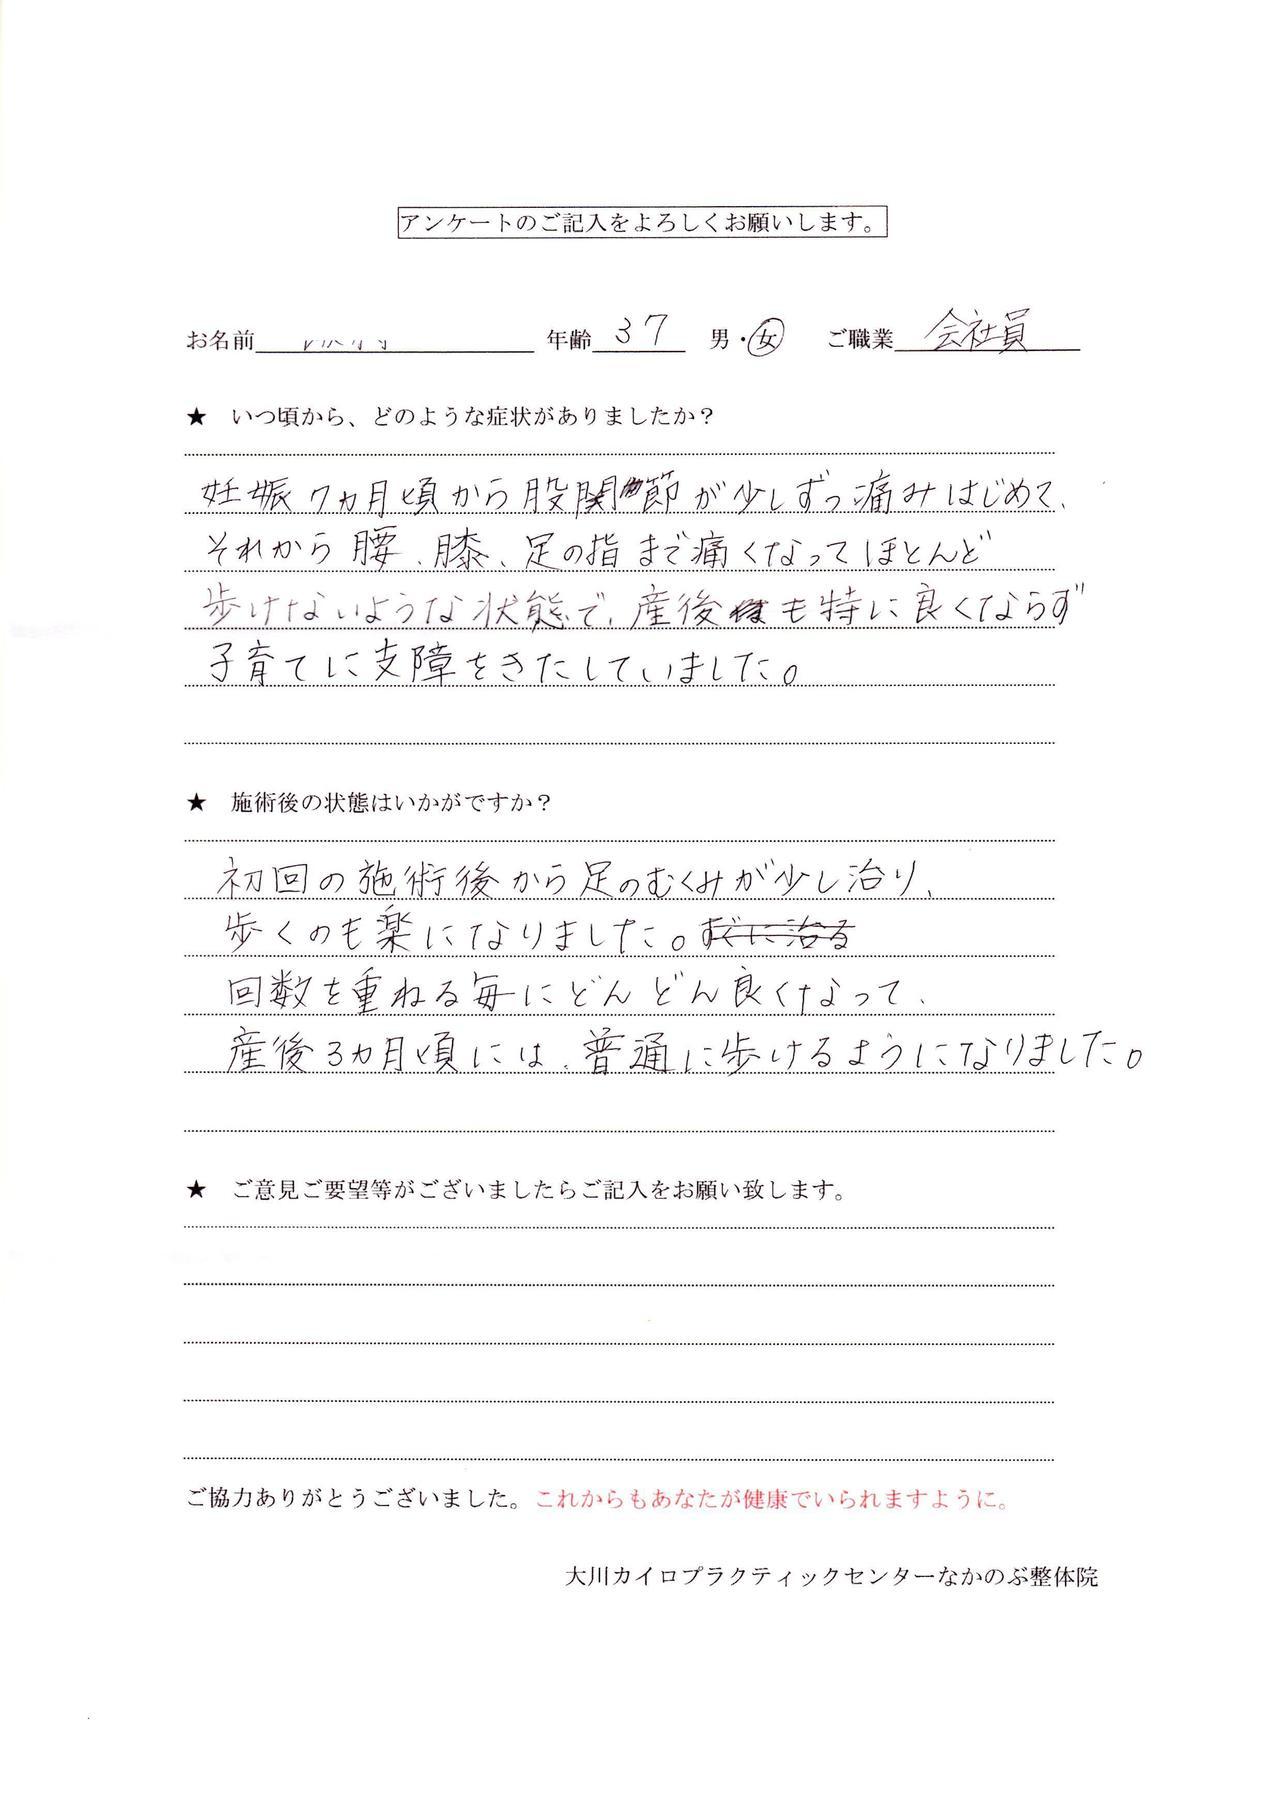 アンケートのご記入をよろしくお願いします。
お名前 年齢 37 男・女 ご職業 会社員
★ いつ頃から、どのような症状がありましたか?
妊娠7ヵ月頃から股関節が少しずつ痛みはじめて、
それから腰、膝、足の指まで痛くなってほとんど
歩けないような状態で、産後も特に良くならず
子育てに支障をきたしていました。
★ 施術後の状態はいかがですか?
初回の施術後から足のむくみが少し治り、
歩くのも楽になりました。すぐに治る
回数を重ねる毎にどんどん良くなって、
産後3ヵ月頃には、普通に歩けるようになりました。
★ ご意見ご要望等がございましたらご記入をお願い致します。
ご協力ありがとうございました。これからもあなたが健康でいられますように。
大川カイロプラクティックセンターなかのぶ整体院